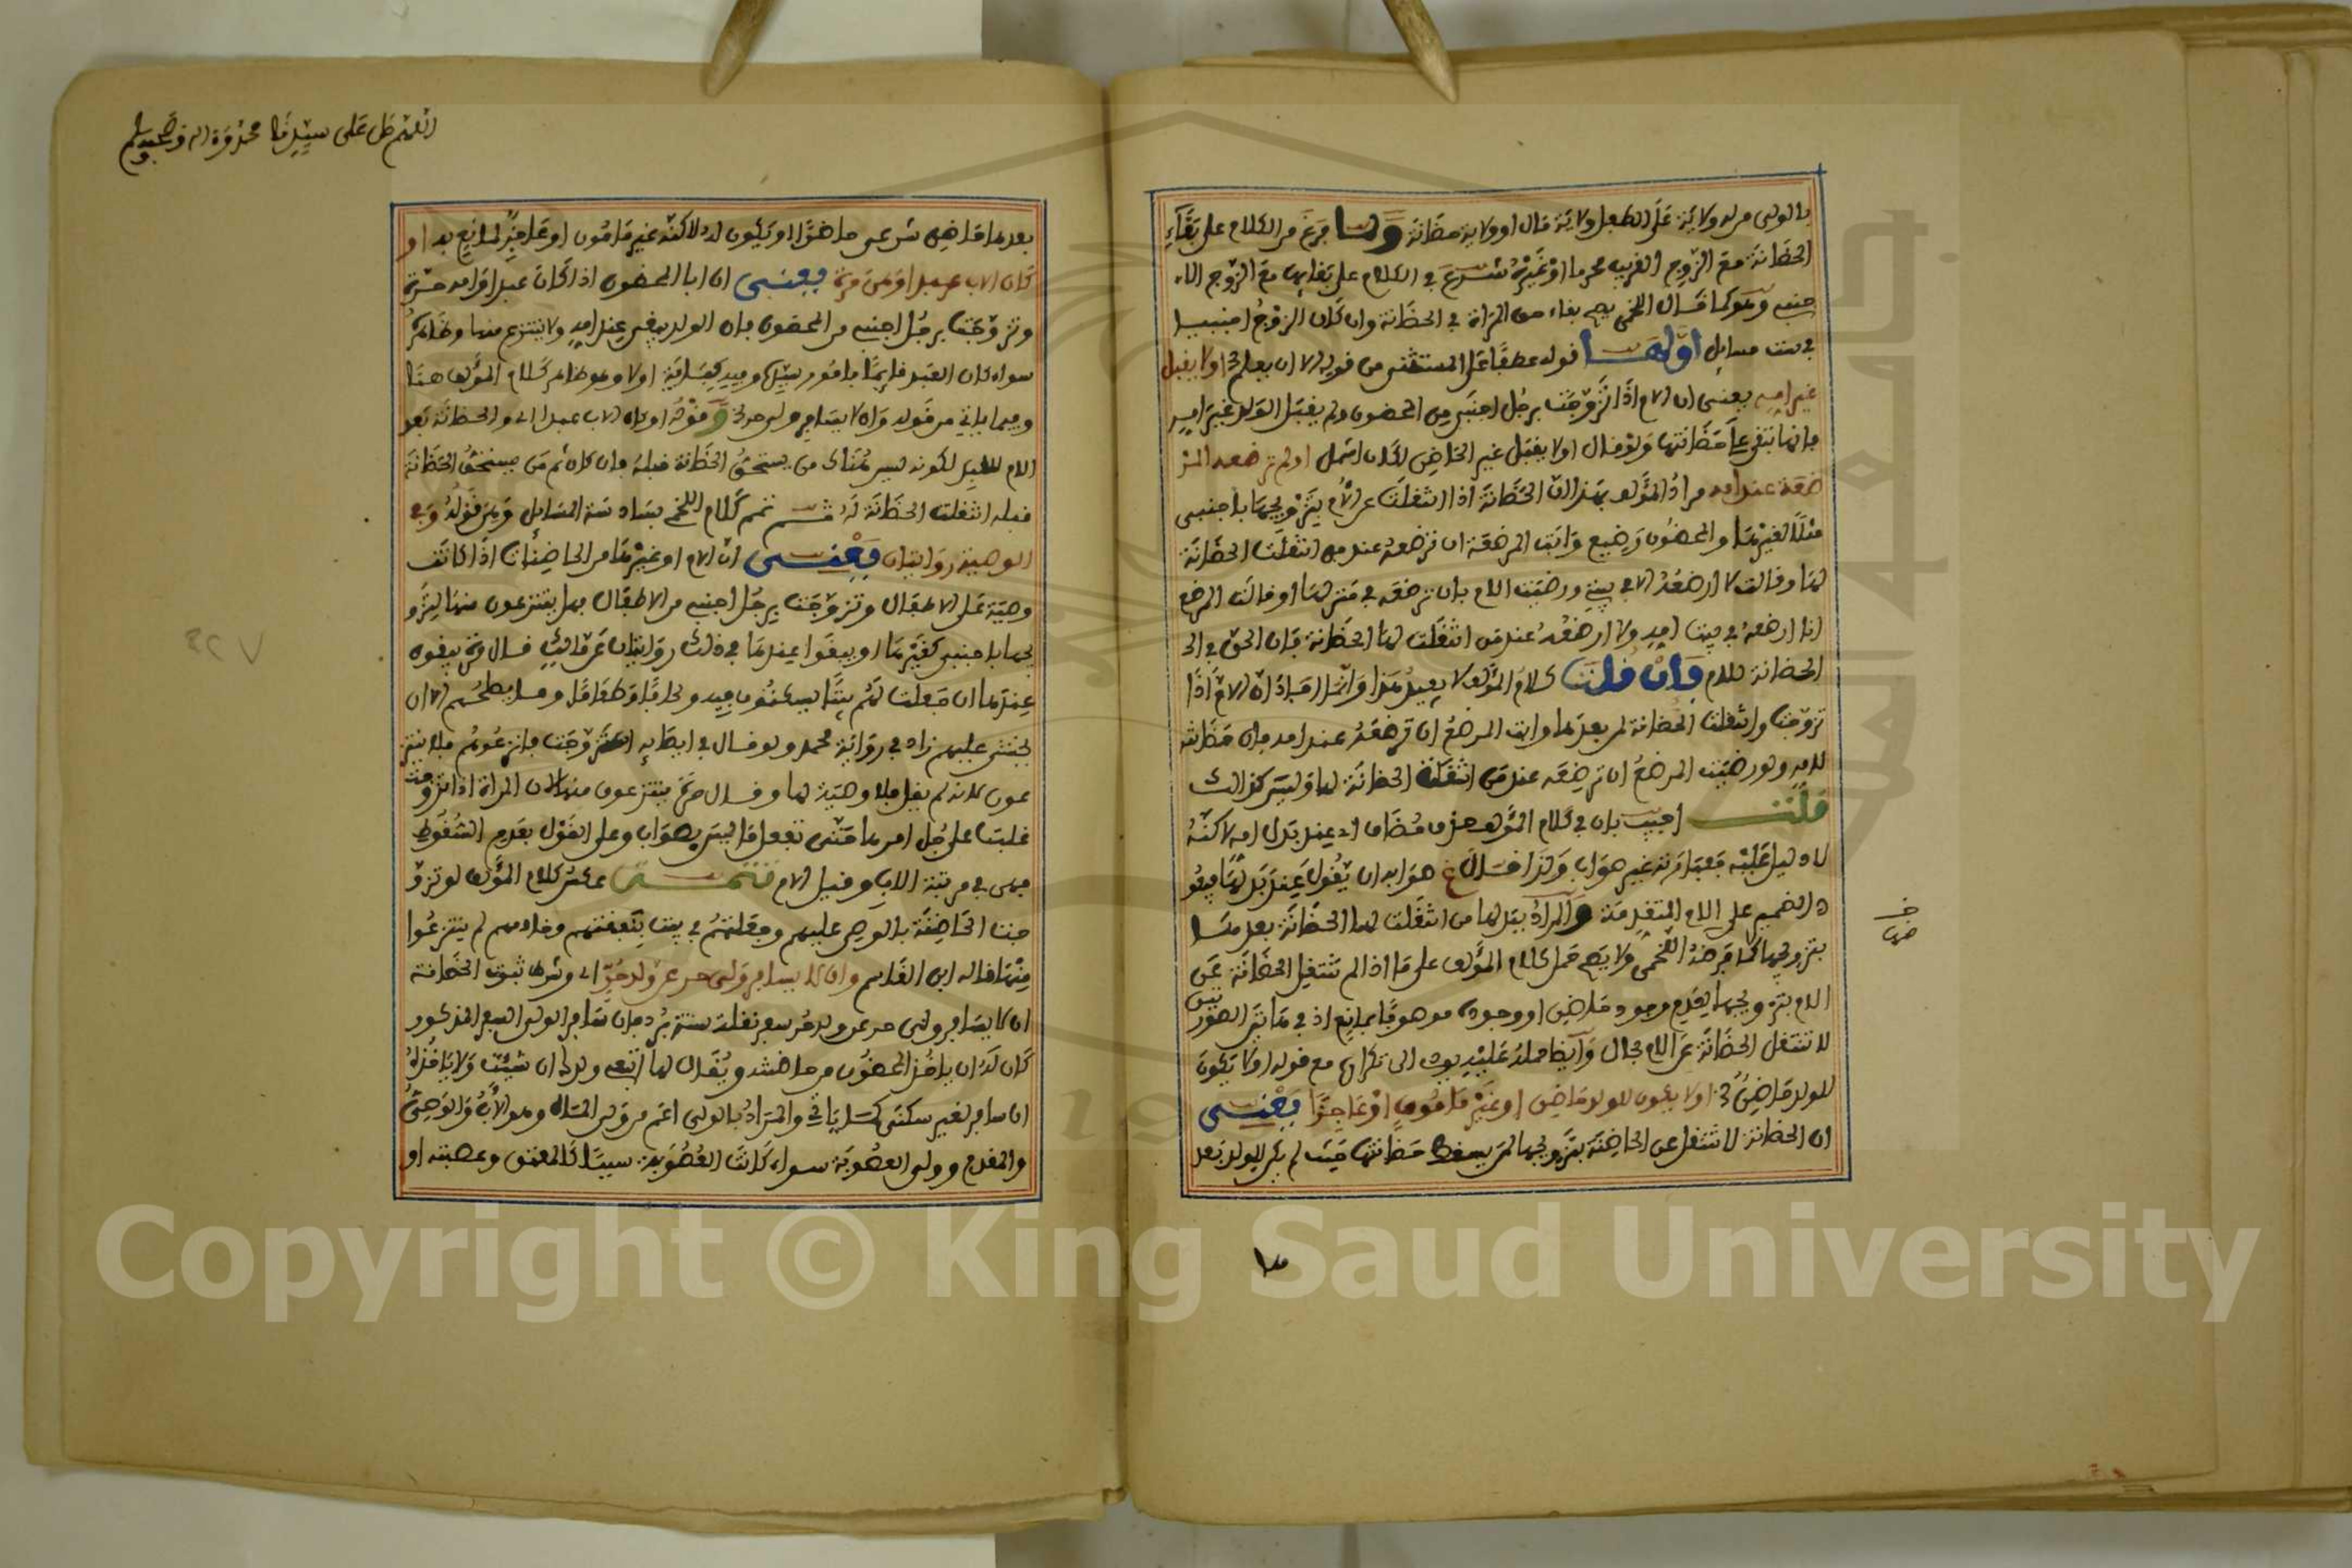 بالولى من له ولاية على الطفل ولاية مال او ولاية حضانة ولما فرغ من الكلام على بقاء
الحضانة مع الزوج القريب محرما او غيره شرع في الكلام على بقائها مع الزوج الا
جنبي وهو كما قال اللخمى يصح بقاء حق المراة في الحضانة وان كان الزوج اجنبيا
في ست مسايل اولها قوله عطفا على المستثنى من قوله الا ان يعلم اولا يقبل
غير امه يعنى ان الام اذا تزوجت برجل اجنبى من المحضون ولم يقبل الولد غير امه
فانها تبقى على حضانتها ولو قال اولا يقبل غير الحاضن لكان اشمل اولم ترضعه المر
ضعة عند امه مراد المولف بهذا ان الحضانة اذا انتقلت عن الام بتزويجها باجنبى
مثلا لغيرها والمحضون رضيع وابت المرضعة ان ترضعه عند من انتقلت الحضانة
لها وقالت لا ارضعه الا في بيتي ورضيت الام بان ترضعه في منزلها او قالت المرضع
انا ارضعه في بيت امه ولا ارضعه عند من انتقلت لها الحضانة فان الحق في
الحضانة للام فان قلت كلام المولف لا يفيد هذا وانما افاد ان الام اذا
تزوجت وانتقلت الحضانة لمن بعدها وابت المرضع ان ترضعه عند امه فان حضانته
لامه ولو رضيت المرضع ان ترضعه عند من انتقلت الحضانة لها وليس كذالك
قلت اجيب بان في كلام المولف حذف مضاف اي عند بدل امه لاكنه
لا دليل عليه فعبارته غير صواب ولذا قال غ صوابه ان يقول عند بدلها فيعو
د الضمير على الام المتقدمة والمراد ببدلها من انتقلت لها الحضانة بعدها
بتزويجها كما فرضه اللخمى ولا يصح حمل كلام المولف على ما اذا لم تنتقل الحضانة عن
الام بتزويجها لعدم وجود حاضن او وجوده موصوفا بمانع اذ في هاتين الصورتين
لا تنتقل الحضانة عن الام بحال وايضا حمله عليه يودى الى تكراره مع قوله اولا يكون
للولد حاضن اولا يكون للولد حاضن او غير مامون او عاجزا يعنى
ان الحضانة لا تنتقل عن الحاضنة بتزويجها لمن يسقط حضانتها حيث لم يكن للولد بعد
ضـ
صها
اللهم صل على سيدنا محمد وءاله وصحبه وسلم
بعدها حاضن شرعى حاضرا او يكون له لاكنه غير مامون او عاجز لمانع به او
كان الاب عبدا وهى حرة يعنى ان ابا المحضون اذا كان عبدا وامه حرة
وتزوجت برجل اجنبى من المحضون فان الولد يبقى عند امه ولا ينتزع منها وظاهره
سواء كان العبد قايما بامور سيده اولا وهو ظاهر كلام المولف هنا
وفيما ياتي من قوله وان لا يسافر ولى حر وقوله او كان الاب عبدا اي والحضانة بعد
الام للعبد لكونه ليس هناك من يستحق الحضانة قبله فان كان ثم من يستحق الحضانة
قبله انتقلت الحضانة له ثم تمم كلام اللخمى بسادسة المسايل وهى قوله وفي
الوصية روايتان يعنى ان الام او غيرها من الحاضنات اذا كانت
وصية على الاطفال وتزوجت برجل اجنبى من الاطفال فهل ينتزعون منها لتزو
يجها باجنبى كغيرها او يبقوا عندها في ذلك روايتان عن مالك قال مرة يبقون
عندها ان جعلت لهم بيتا يسكنون فيه ولحافا وطعاما وما يصلحهم الا ان
يخشى عليهم زاد في رواية محمد ولو قال في ايصايه ان تزوجت فانزعوهم فلا ينتز
عون لانه لم يقل فلا وصية لها وقال مرة ينتزعون منها لان المراة اذا تزوجت
غلبت على جل امرها حتى تفعل ما ليس بصواب وعلى القول بعدم السقوط
فهى في مرتبة الاب وقيل الام تنبيه عكس كلام المولف لو تزو
جت الحاضنة بالوصى عليهم وجعلتهم في بيت بنفقتهم وخادمهم لم ينتزعوا
منها قاله ابن القاسم وان لا يسافر ولى حر عن ولد حر اي وشرط ثبوت الحضانة
ان لا يسافر ولى حر عن ولد حر سفر نقلة ستة برد فان سافر الولى السفر المذكور
كان له ان ياخذ المحضون من حاضنته ويقال لها اتبعى ولدك ان شيت ولا ياخذه
ان سافر لغير سكنى كما ياتي والمراد بالولى اعم من ولى المال وهو الاب والوصى
والمقدم وولى العصوبة سواء كانت العصوبة سببا كالمعتق وعصبته او